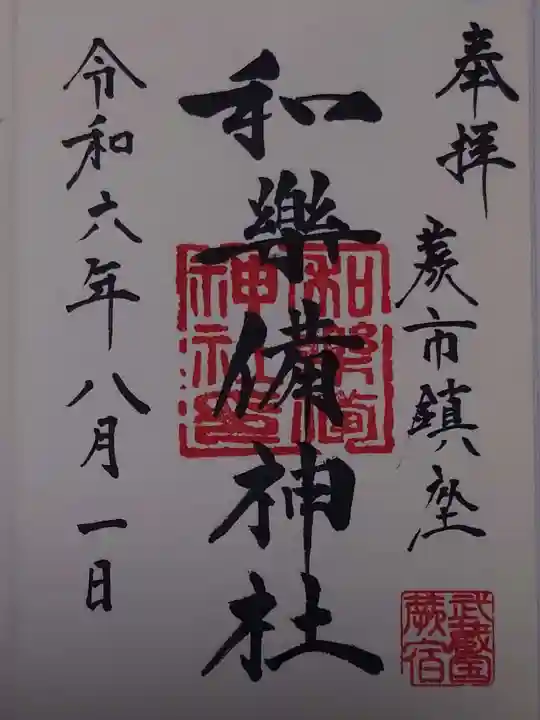 奉拝
蕨市鎮座
武蔵国
蕨宿
和樂備神社
和樂備
神社印
令和六年八月一日